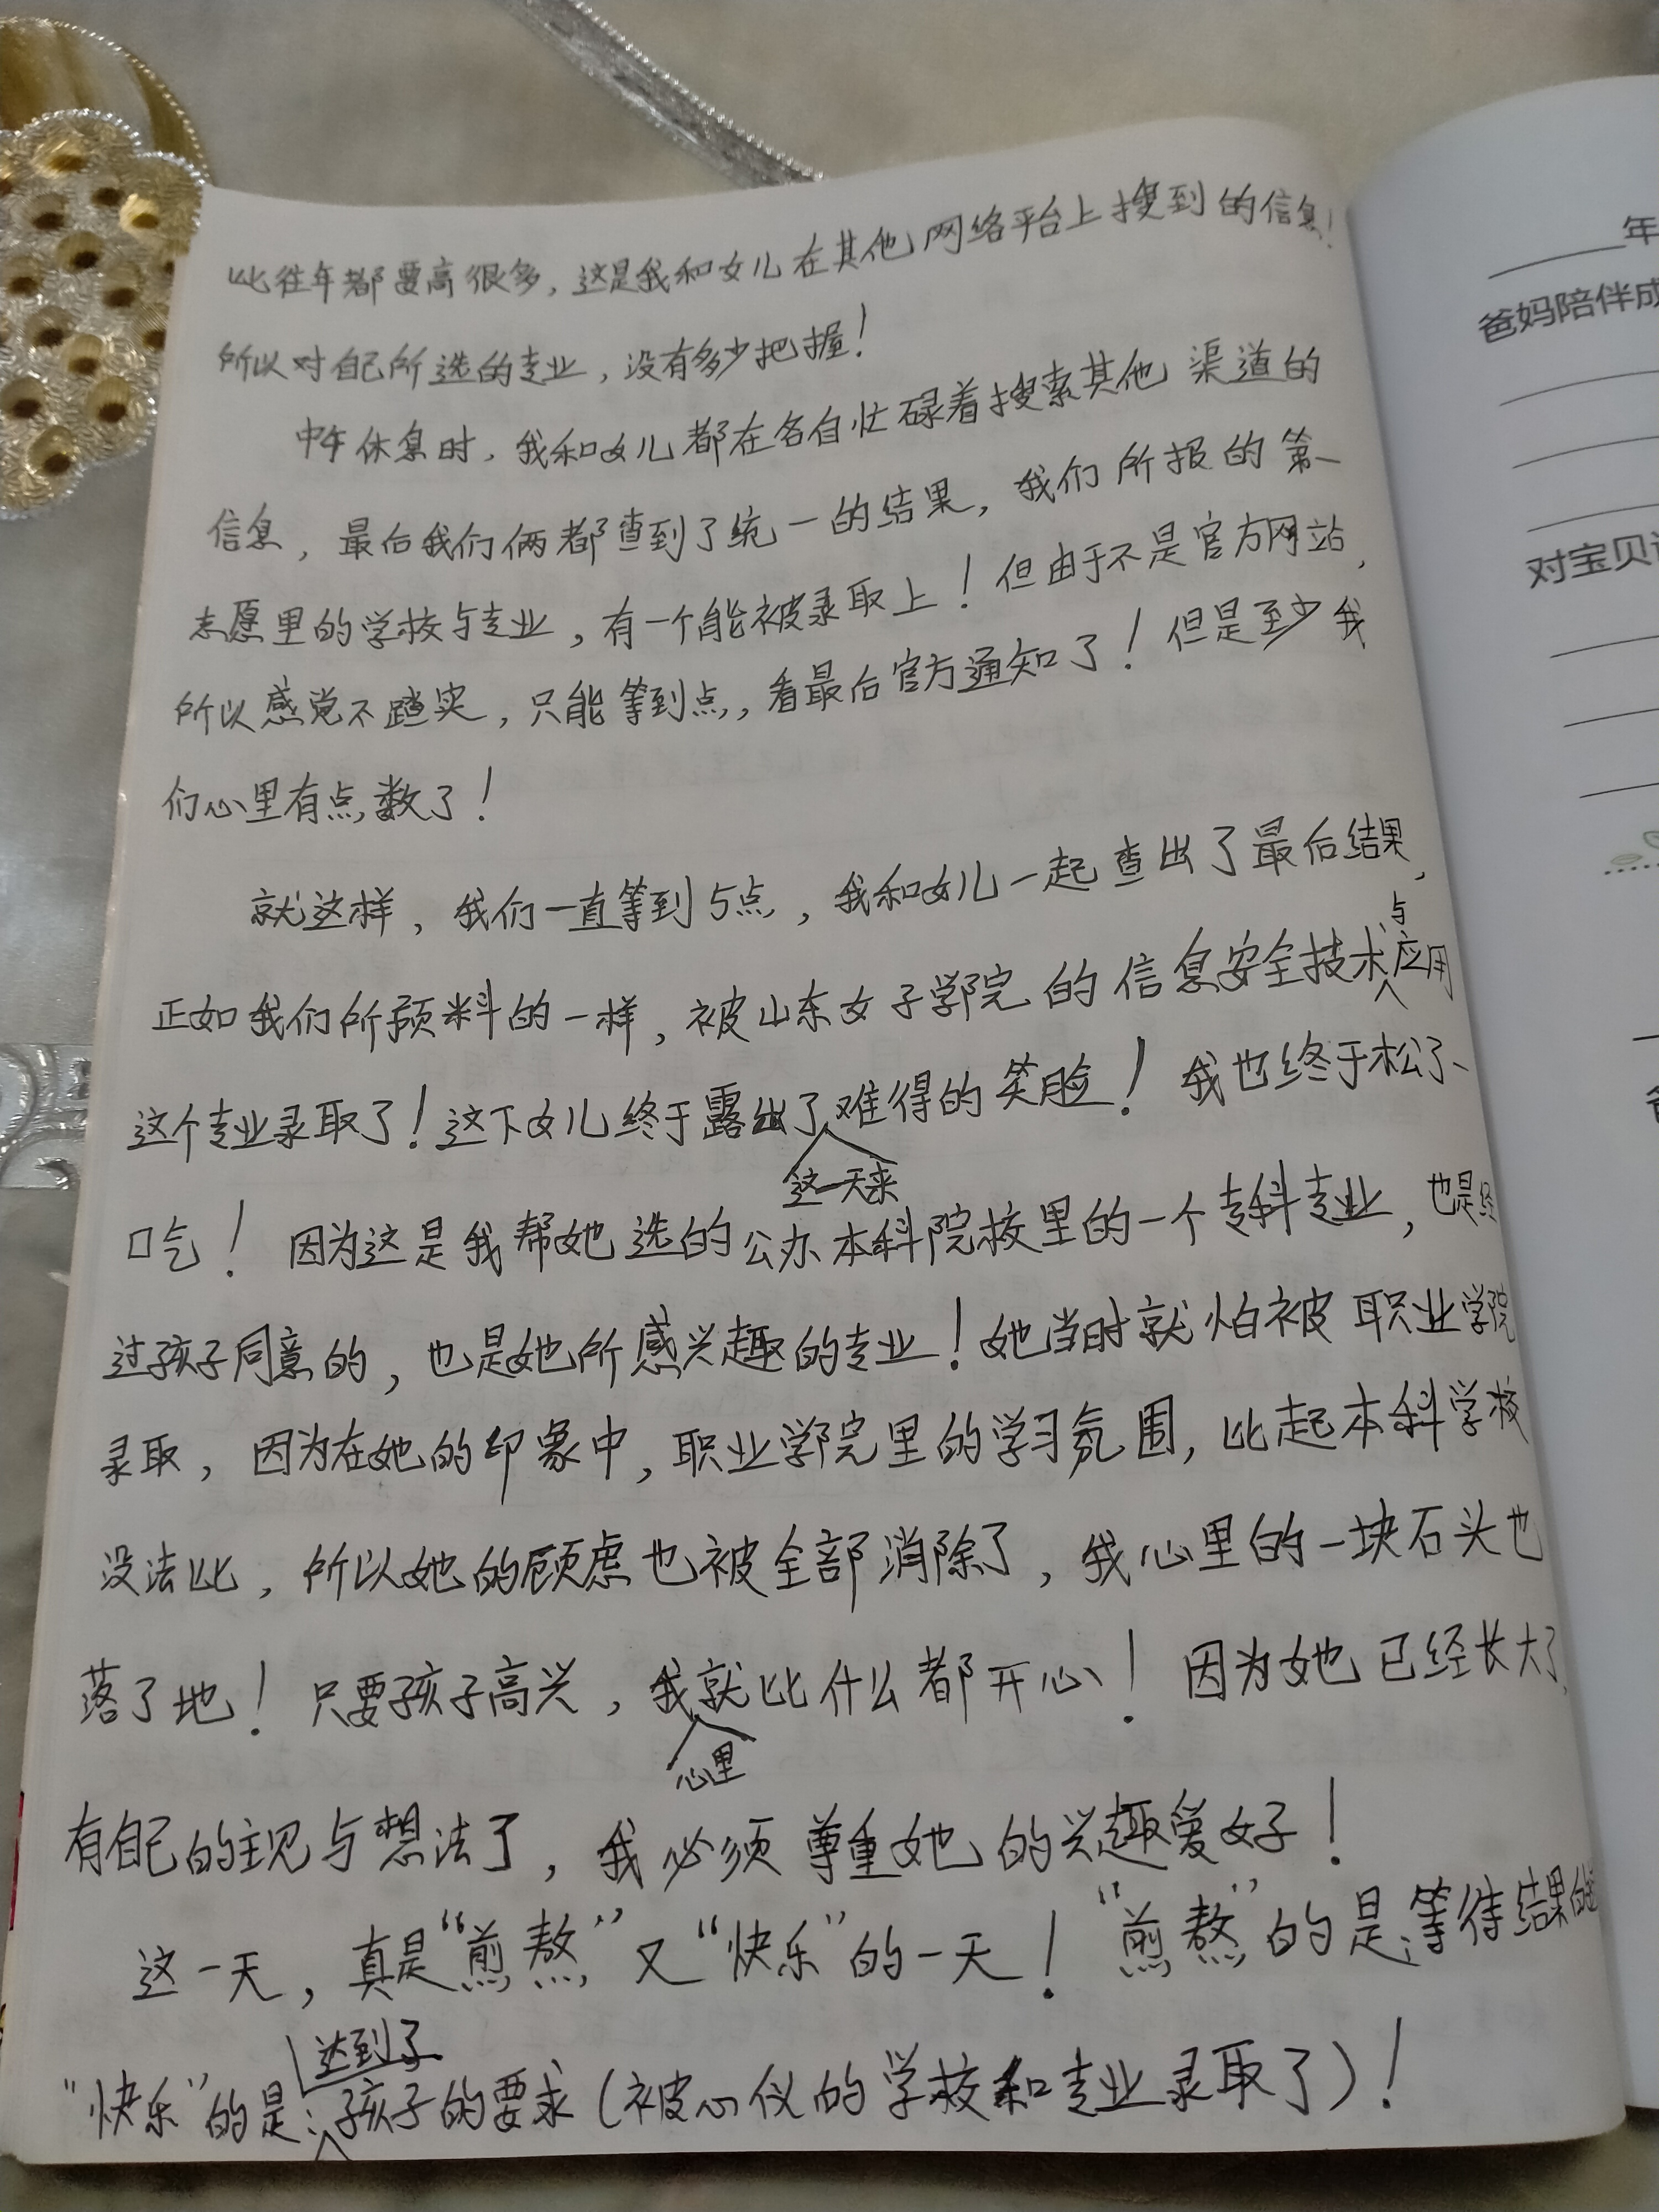 比往年都要高很多，这是我和女儿在其他网络平台上搜到的信息！
所以对自己所选的专业，没有多少把握！
中午休息时，我和女儿都在各自忙碌着搜索其他渠道的
信息，最后我们俩都查到了统一的结果，我们所报的第一
志愿里的学校与专业，有一个能被录取上！但由于不是官方网站，
所以感觉不踏实，只能等到点，看最后官方通知了！但是至少我
们心里有点数了！
就这样，我们一直等到5点，我和女儿一起查出了最后结果，
正如我们所预料的一样，被山东女子学院的信息安全技术与应用
这个专业录取了！这下女儿终于露出了这一天来难得的笑脸！我也终于松了一
口气！因为这是我帮她选的公办本科院校里的一个专科专业，也是经
过孩子同意的，也是她所感兴趣的专业！她当时就怕被职业学院
录取，因为在她的印象中，职业学院里的学习氛围，比起本科学校
没法比，所以她的顾虑也被全部消除了，我心里的一块石头也
落了地！只要孩子高兴，我心里就比什么都开心！因为她已经长大了，
有自己的主见与想法了，我必须尊重她的兴趣爱好！
这一天，真是“煎熬”又“快乐”的一天！“煎熬”的是：等待结果的
“快乐”的是：达到了孩子的要求（被心仪的学校和专业录取了）！
年
爸妈陪伴成
对宝贝